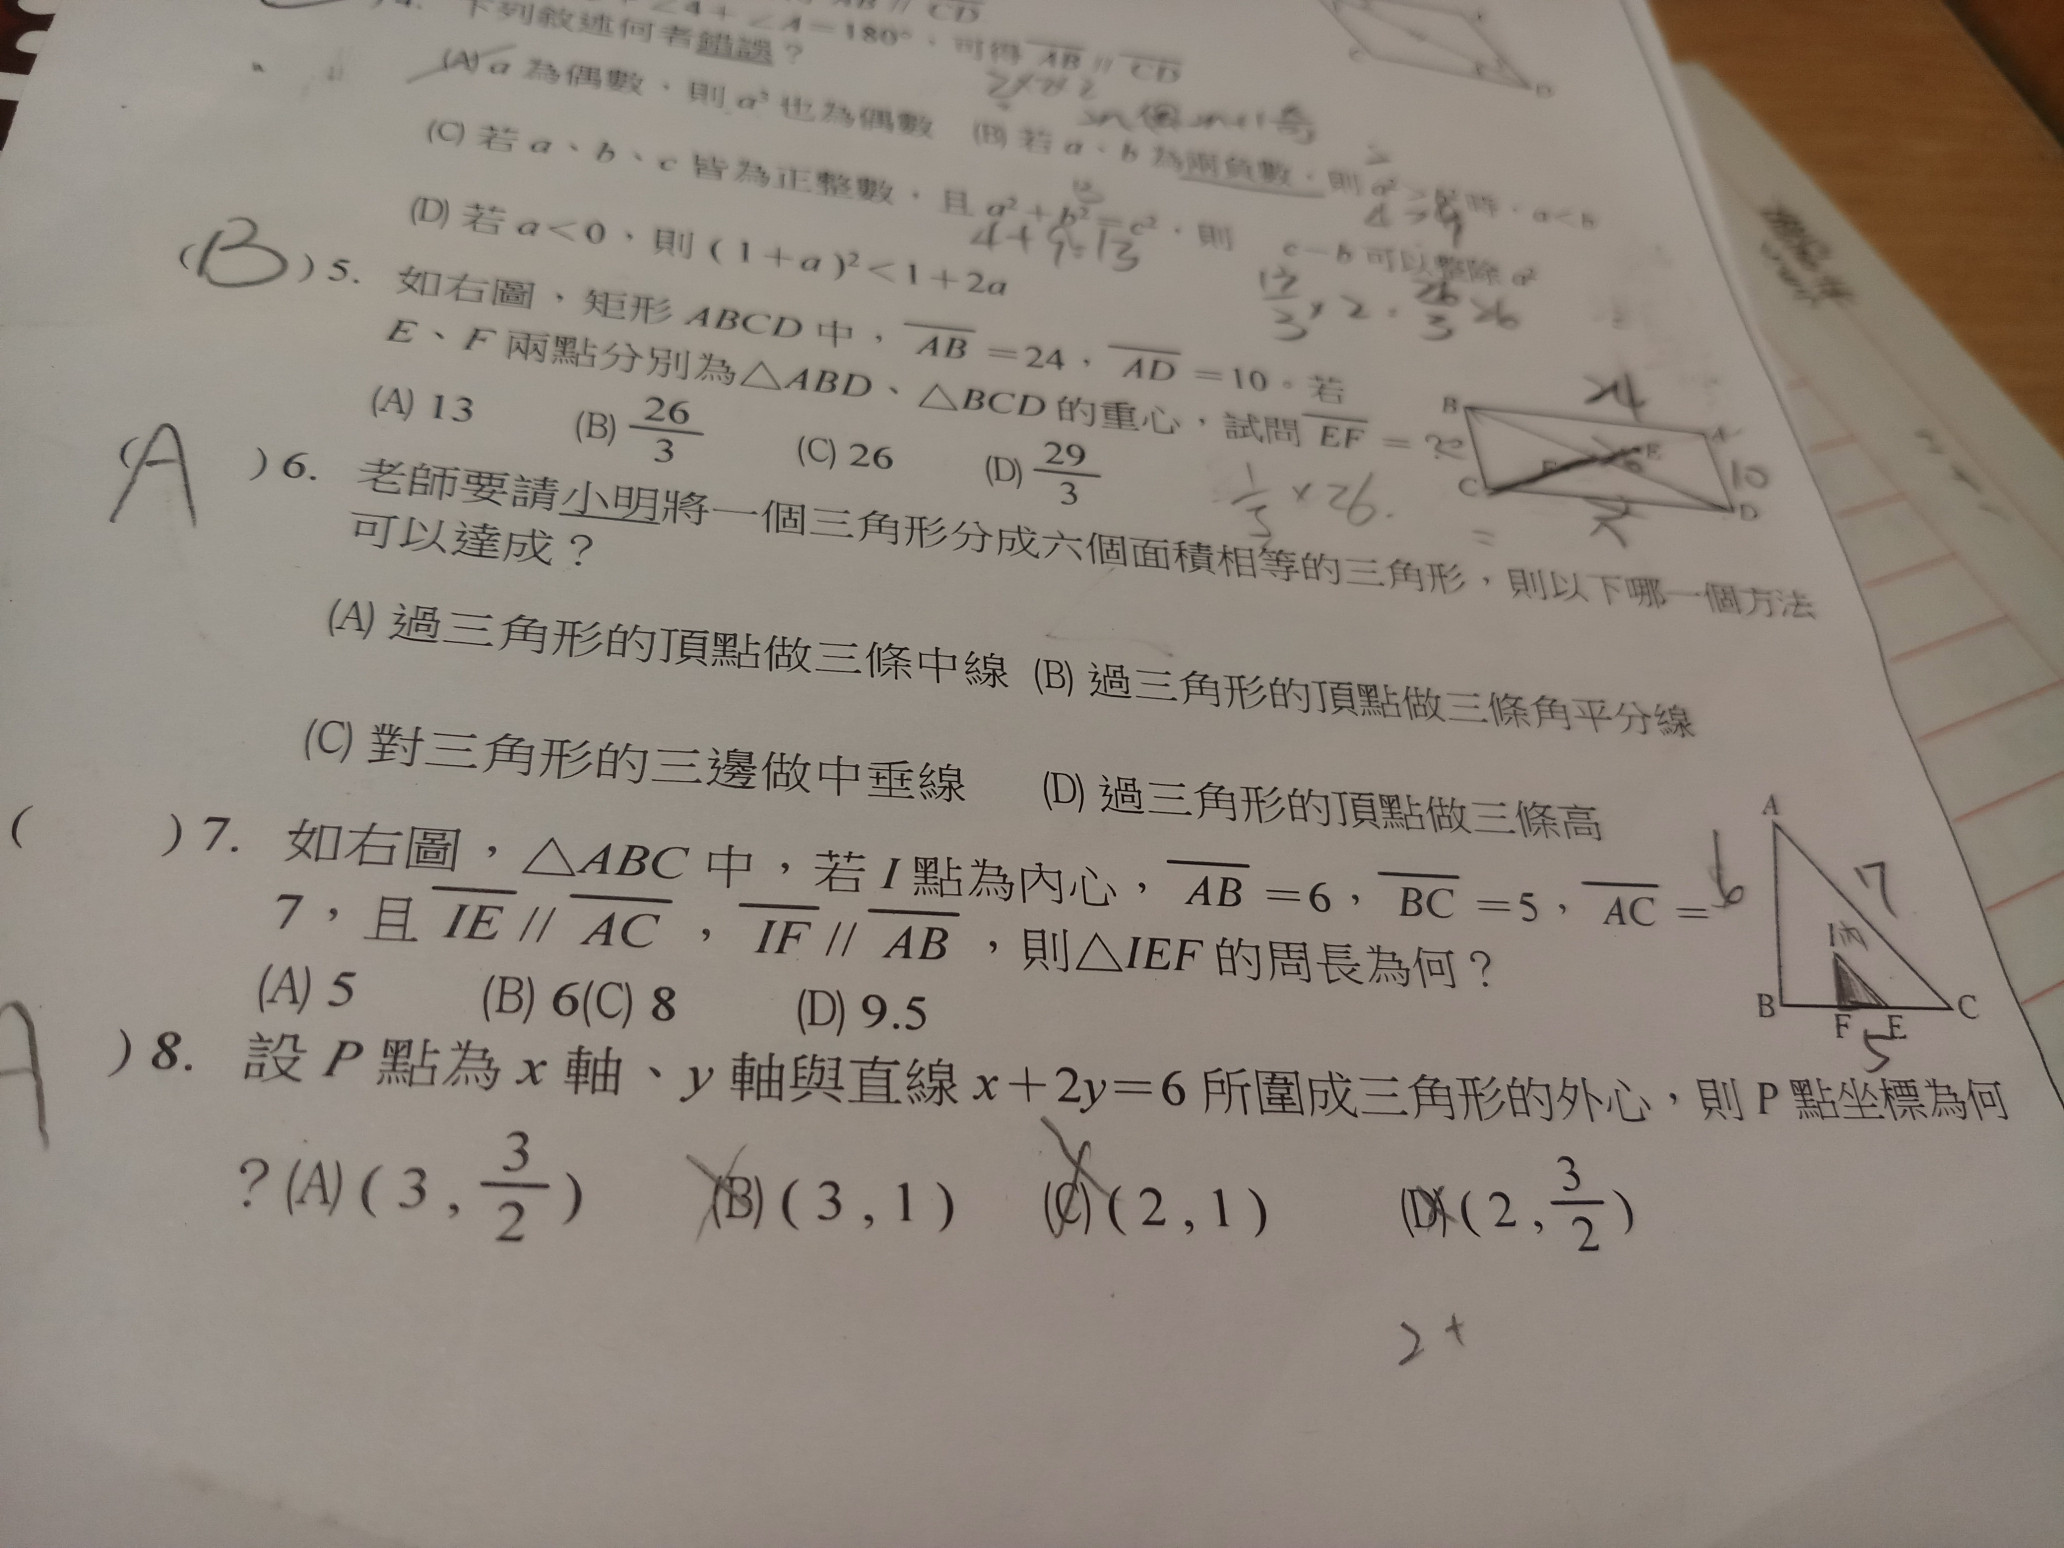 AB // CD
∠4+∠A=180°,可得 AB // CD
4. 下列敘述何者錯誤?
(A) a 為偶數,則 a² 也為偶數 (B) 若 a、b 為兩負數,則 a²>b²時,a<b
(C) 若 a、b、c 皆為正整數,且 a²+b²=c²,則 c-b 可以整除 a²
4+9=13
4>9
(D) 若 a<0,則 (1+a)²<1+2a
(B) 5. 如右圖,矩形 ABCD 中,AB=24,AD=10。若
E、F 兩點分別為△ABD、△BCD 的重心,試問 EF=?
(A) 13 (B) 26/3 (C) 26 (D) 29/3
13/3 × 2 = 26/3
1/3 × 26
B A E F C D
24
10
(A) 6. 老師要請小明將一個三角形分成六個面積相等的三角形,則以下哪一個方法
可以達成?
(A) 過三角形的頂點做三條中線 (B) 過三角形的頂點做三條角平分線
(C) 對三角形的三邊做中垂線 (D) 過三角形的頂點做三條高
( ) 7. 如右圖,△ABC 中,若 I 點為內心,AB=6,BC=5,AC=
7,且 IE // AC,IF // AB,則△IEF 的周長為何?
(A) 5 (B) 6(C) 8 (D) 9.5
A
6
7
B F E C
5
A ) 8. 設 P 點為 x 軸、y 軸與直線 x+2y=6 所圍成三角形的外心,則 P 點坐標為何
?(A) ( 3 , 3/2 ) (B) ( 3 , 1 ) (C) ( 2 , 1 ) (D) ( 2 , 3/2 )
2+